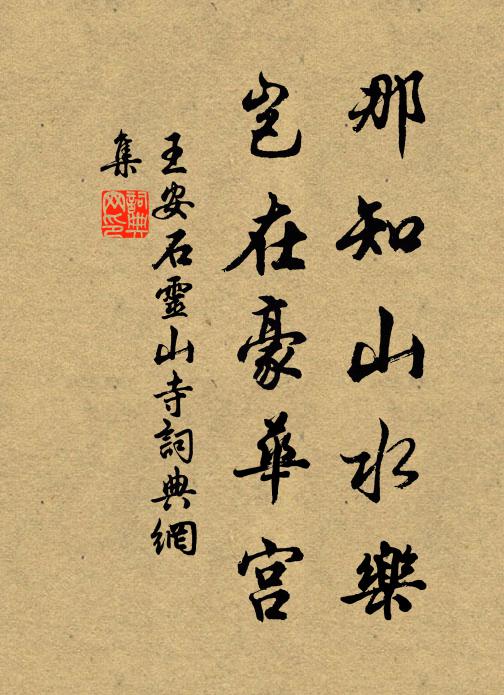 那知山水樂
岂在豪華宫
王安石靈山寺詞典網
集
詞典網印